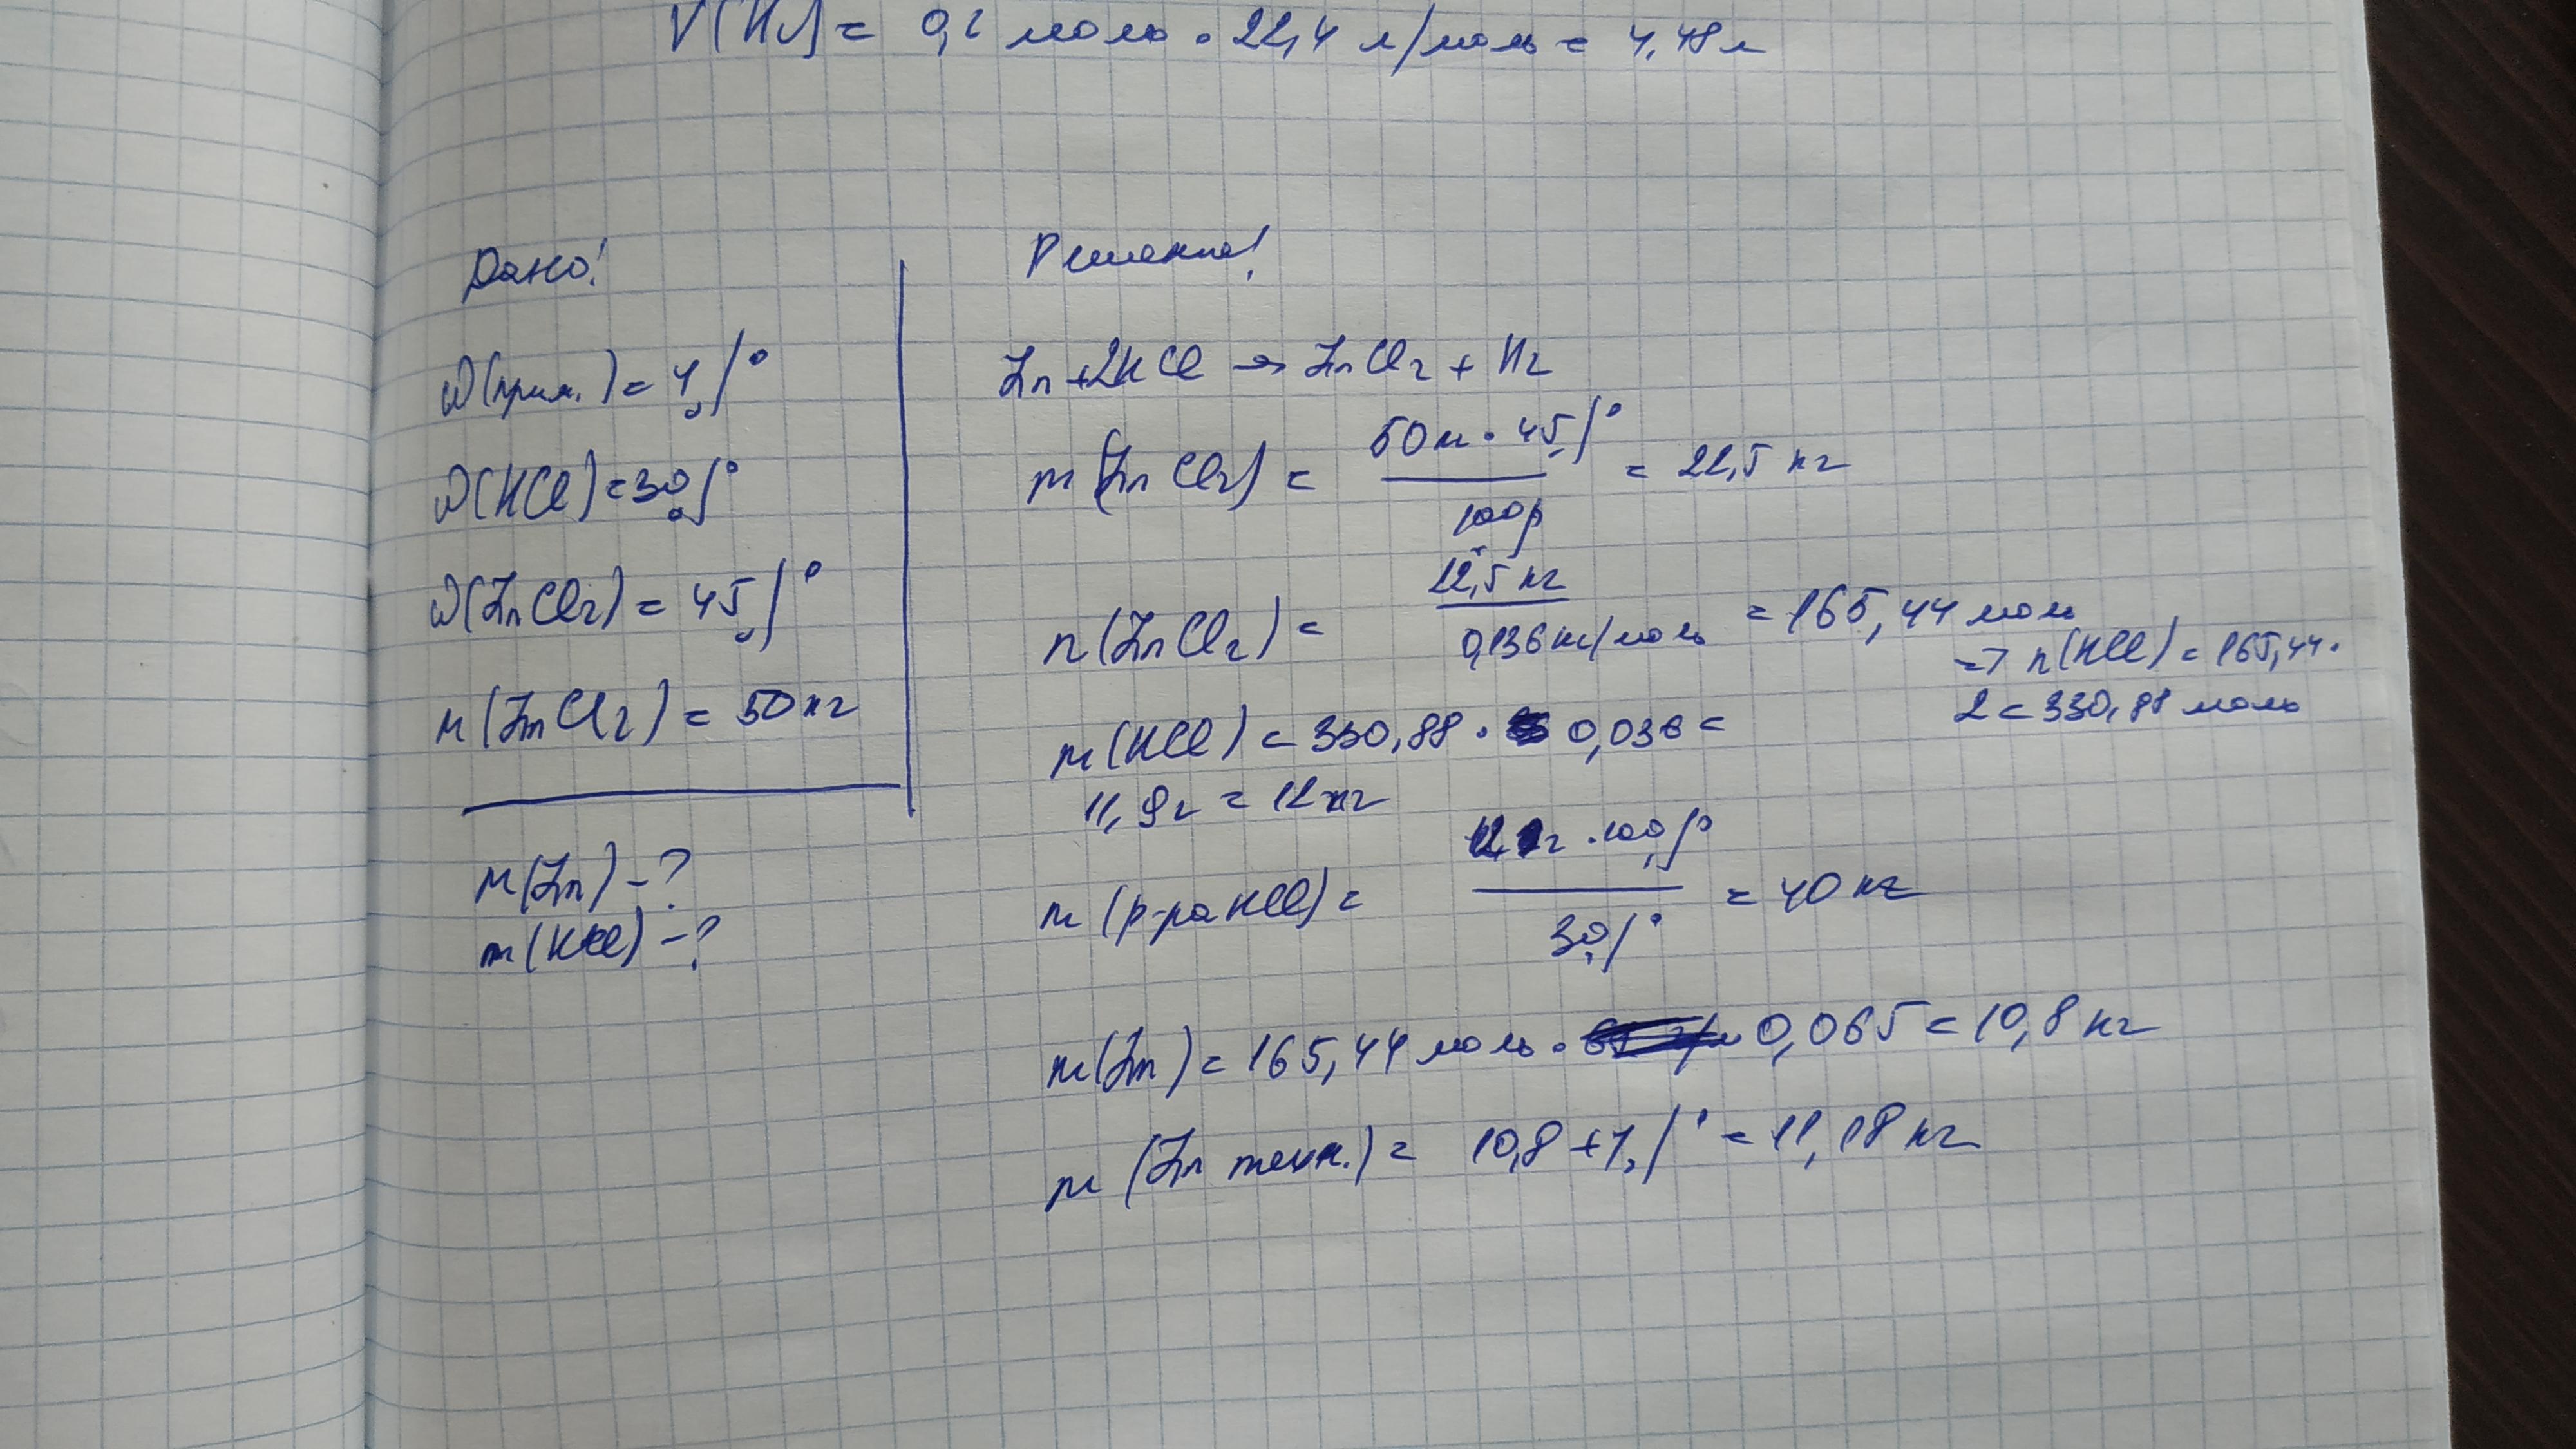 V(H2) = 0,2 моль · 22,4 л/моль = 4,48 л
Дано:
ω(прим.) = 4 %
ω(HCl) = 30 %
ω(ZnCl2) = 45 %
m(ZnCl2) = 50 кг
m(Zn) - ?
m(HCl) - ?
Решение:
Zn + 2HCl → ZnCl2 + H2
m(ZnCl2) = 50 кг · 45 % / 100 % = 22,5 кг
n(ZnCl2) = 22,5 кг / 0,136 кг/моль = 165,44 моль
=> n(HCl) = 165,44 ·
2 = 330,88 моль
m(HCl) = 330,88 · 0,036 =
11,9 г = 12 кг
m(р-ра HCl) = 12 кг · 100 % / 30 % = 40 кг
m(Zn) = 165,44 моль · 0,065 = 10,8 кг
m(Zn техн.) = 10,8 + 4 % = 11,18 кг